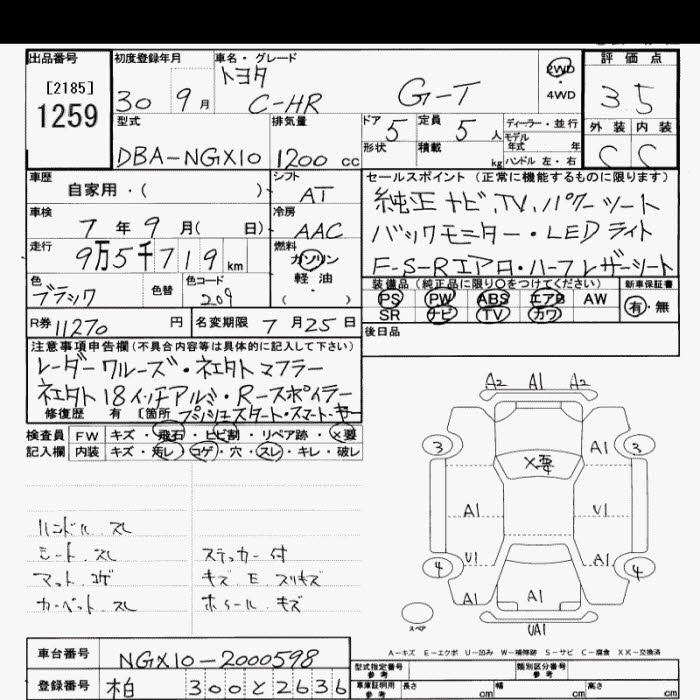 出品番号
[2185]
1259
初度登録年月
30 9月
車名・グレード
トヨタ
C-HR G-T
2WD
・
4WD
評価点
3 5
外装 内装
C C
型式
DBA-NGX10
排気量
1200 cc
ドア 5
定員 5 人
形状
積載 kg
ディーラー・並行
モデル
年式 年
ハンドル 左・右
車歴
自家用・( )
シフト
AT
車検
7年9月( 日)
冷房
AAC
走行
9万5千719km
燃料
ガソリン
軽油
・
( )
色
ブラック
色替
色コード
209
R券 11270 円
名変期限 7月25日
セールスポイント(正常に機能するものに限ります)
純正ナビ、TV、パワーシート
バックモニター・LEDライト
F-S-Rエアロ・ハーフレザーシート
装備品(純正品に限り○をつけてください)
PS PW ABS エアB AW
SR ナビ TV カワ
新車保証書
有・無
後日品
注意事項申告欄(不具合内容等は具体的に記入して下さい)
レーダークルーズ・ネエクトマフラー
ネエクト18インチアルミ・Rースポイラー
修復歴 有 〔箇所 プッシュスタート・スマートキー
検査員 FW キズ・飛石・ヒビ割・リペア跡・X要
記入欄 内装 キズ・汚レ・コゲ・穴・スレ・キレ・破レ
ハンドル スレ
シート スレ
マット コゲ
カーペット スレ
ステッカー付
キズ E スリキズ
ホイール キズ
A2 A1 A2
3 A1 3
X要
A1 U1
4 U1 A1 4
A1 A1 A1
スペア
UA1
A-キズ E-エクボ U-凹み W-補修跡 S-サビ C-腐食 XX-交換済
車台番号
NGX10-2000598
登録番号
柏 300 と 2636
型式指定番号
参考
類別区分番号
参考
車庫証明用
参考
長さ cm
幅 cm
高さ cm